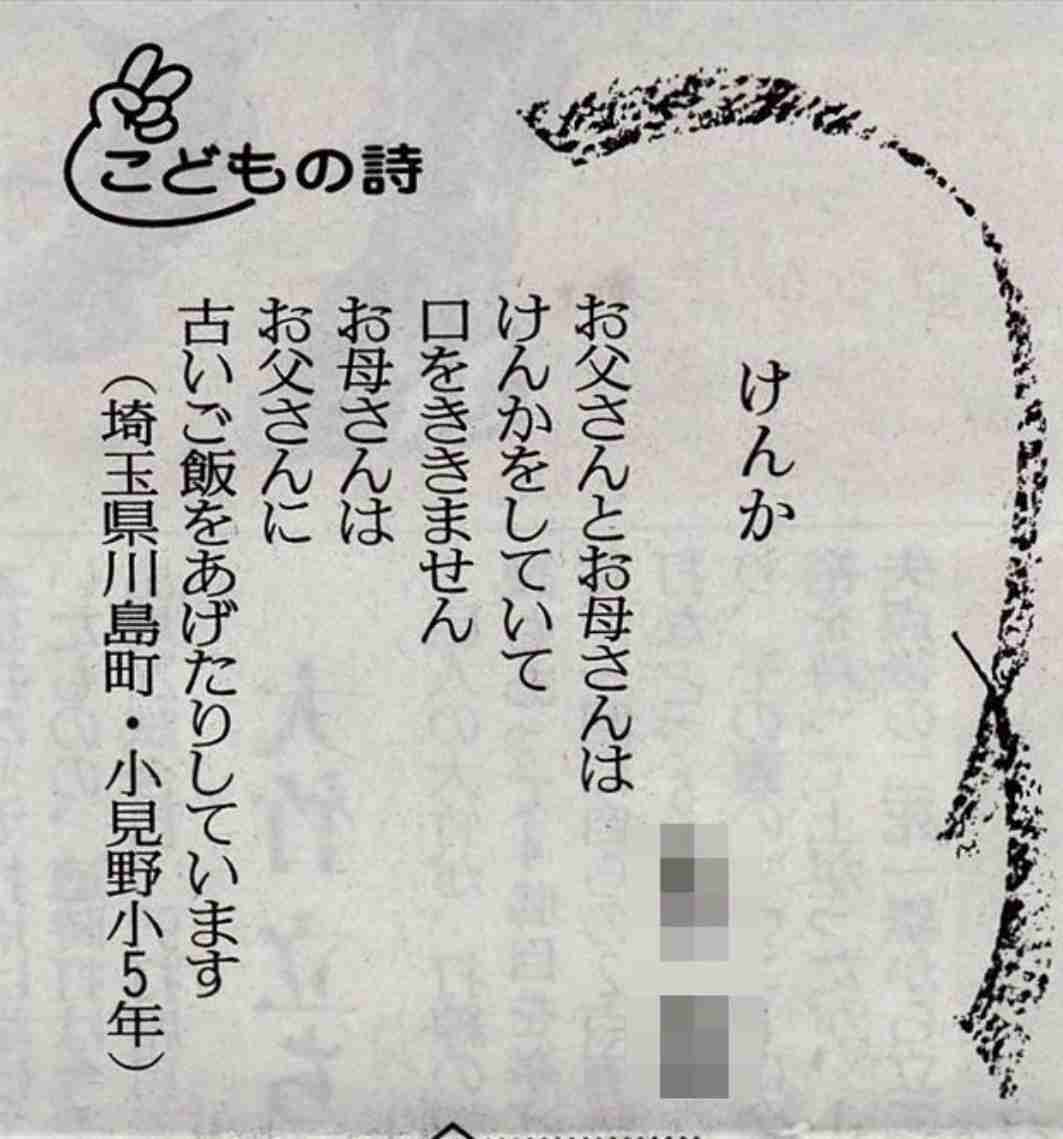 こどもの詩
けんか
お父さんとお母さんは
けんかをしていて
口をききません
お母さんは
お父さんに
古いご飯をあげたりしています
（埼玉県川島町・小見野小5年）